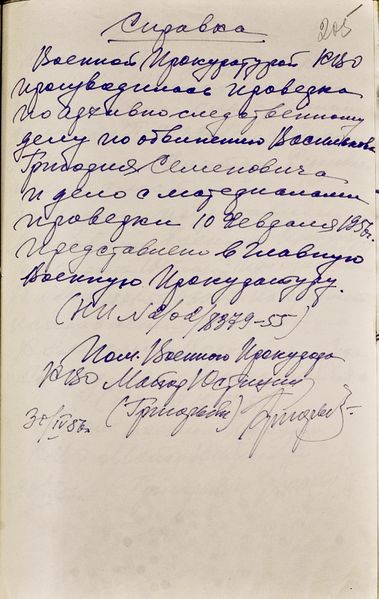 205
Справка
Военной Прокуратурой КВО
производилась проверка
по архивно-следственному
делу по обвинению Василькова
Григория Семеновича
и дело с материалами
проверки 10 февраля 1956г.
представлено в Главную
Военную Прокуратуру.
(НП №2/02/8379-55)
Пом. Военного Прокурора
КВО Майор Юстиции
(Григорьев)
/IV 56г.